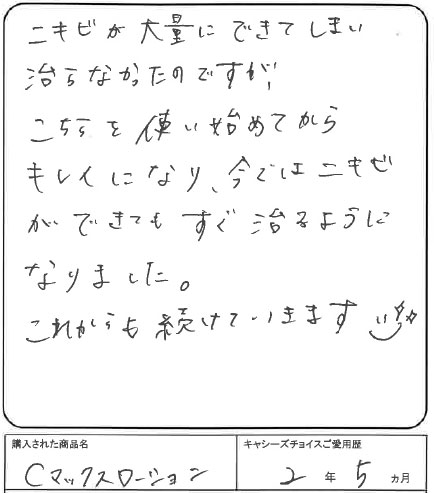 ニキビが大量にできてしまい
治らなかったのですが、
こちらを使い始めてから
キレイになり、今ではニキビ
ができてもすぐ治るように
なりました。
これからも続けていきます
購入された商品名
Cマックスローション
キャシーズチョイスご愛用歴
2年5ヵ月